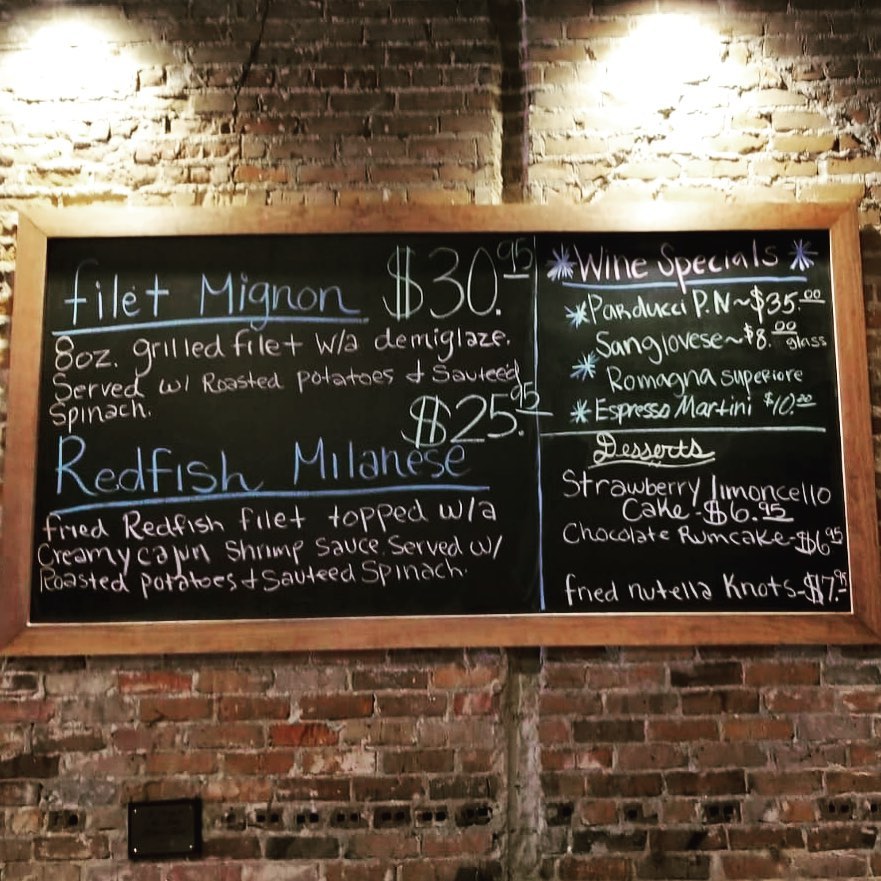 filet Mignon $30.95
8oz. grilled filet w/a demiglaze.
Served w/ Roasted potatoes & Sauteed
Spinach.
$25.95
Redfish Milanese
fried Redfish filet topped w/a
Creamy cajun shrimp sauce. Served w/
Roasted potatoes & Sauteed Spinach.
Wine Specials
Parducci P.N ~ $35.00
Sangiovese ~ $8.00 glass
Romagna superiore
Espresso Martini $10.00
Desserts
Strawberry limoncello
Cake - $6.95
Chocolate Rumcake - $6.95
fried nutella Knots - $7.95